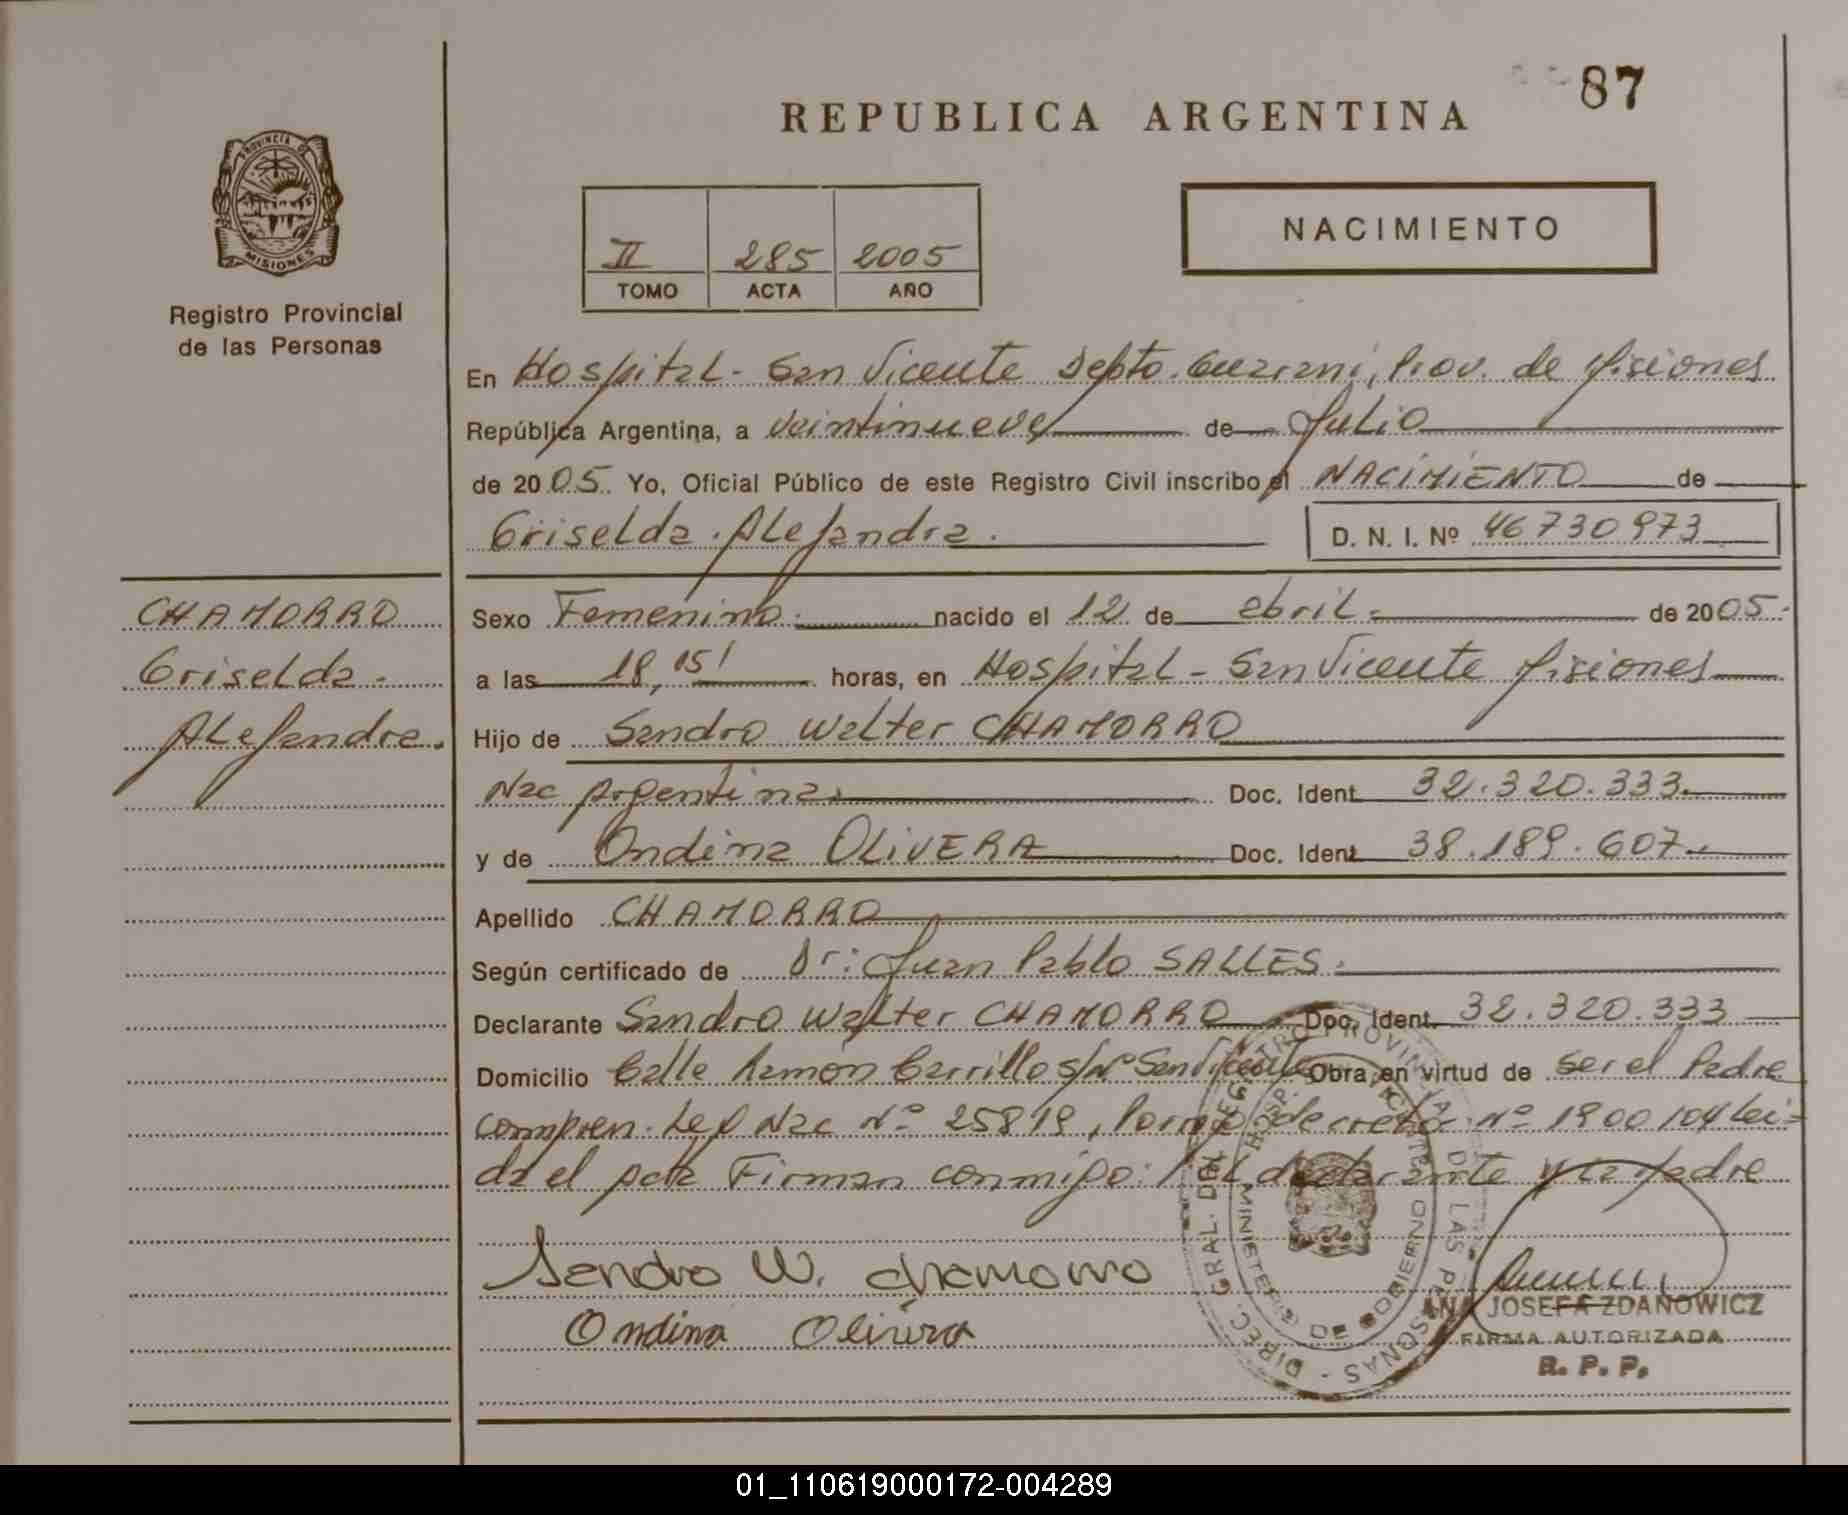 87
REPUBLICA ARGENTINA
PROVINCIA DE
MISIONES
Registro Provincial
de las Personas
II 285 2005
TOMO ACTA AÑO
NACIMIENTO
En Hospital - San Vicente Depto. Guarani, Prov. de Misiones
República Argentina, a Veintinueve de Julio
de 2005. Yo, Oficial Público de este Registro Civil inscribo el NACIMIENTO de
Griselda Alejandra.
D. N. I. Nº 46730973
CHAMORRO
Griselda -
Alejandra.
Sexo Femenino. nacido el 12 de abril. de 2005.
a las 18,05' horas, en Hospital - San Vicente Misiones
Hijo de Sandro Walter CHAMORRO
Nac Argentina. Doc. Ident. 32.320.333.
y de Ondina OLIVERA Doc. Ident. 38.189.607.
Apellido CHAMORRO
Según certificado de Dr: Juan Pablo SALLES.
Declarante Sandro Walter CHAMORRO Doc. Ident. 32.320.333
Domicilio Calle Ramón Carrillo s/nº San Vicente Obra en virtud de ser el Padre
compren. Ley Nac Nº 25819, decreto Nº 1900/04 Lei=
da el acta Firman conmigo: El declarante y la Madre
Sandro W. Chamorro
Ondina Olivera
DIREC. GRAL. DEL REGISTRO PROVINCIAL DE LAS PERSONAS -
MINISTERIO DE GOBIERNO
HOSP. SAN VICENTE
ANA JOSEFA ZDANOWICZ
FIRMA AUTORIZADA
R. P. P.
01_110619000172-004289